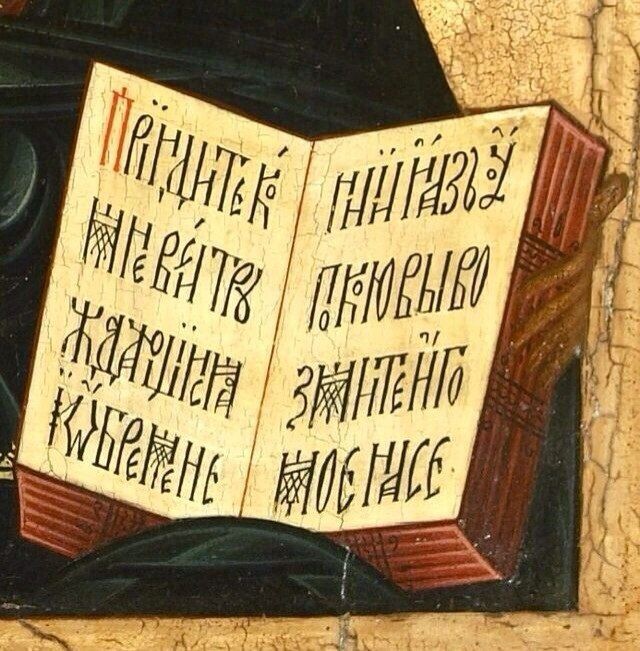 Прїидите ко
мне вси трꙋ
ждающїися
и ѡбремене
нїи и азъ ꙋ
покою вы во
змите иго
мое на се